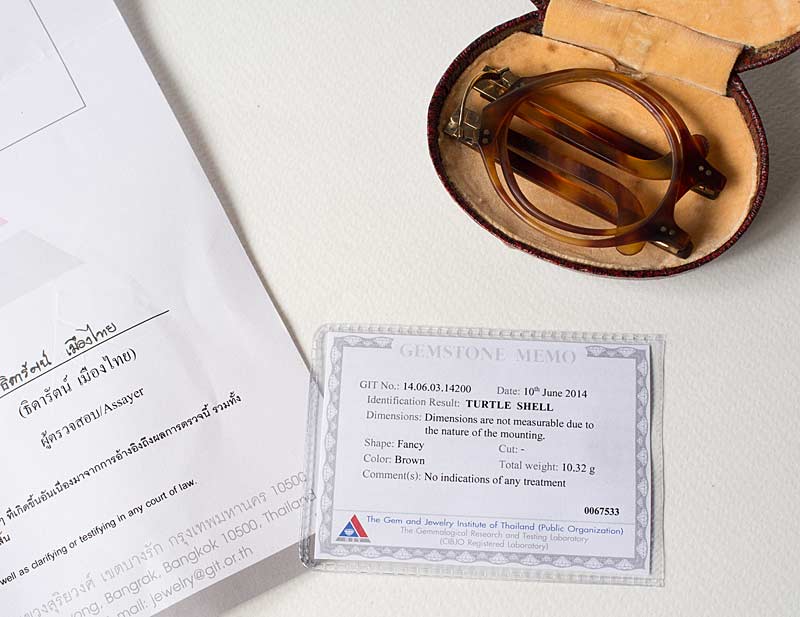 ธิดารัตน์ เมืองไทย
(ธิดารัตน์ เมืองไทย)
ผู้ตรวจสอบ/Assayer
ที่เกิดขึ้นอันเนื่องมาจากการอ้างอิงถึงผลการตรวจนี้ รวมทั้ง
well as clarifying or testifying in any court of law.
แขวงสุริยวงศ์ เขตบางรัก กรุงเทพมหานคร 10500
Bangrak, Bangkok 10500, Thailand
mail: jewelry@git.or.th
GEMSTONE MEMO
GIT No.: 14.06.03.14200 Date: 10th June 2014
Identification Result: TURTLE SHELL
Dimensions: Dimensions are not measurable due to
the nature of the mounting.
Shape: Fancy Cut: -
Color: Brown Total weight: 10.32 g
Comment(s): No indications of any treatment
0067533
The Gem and Jewelry Institute of Thailand (Public Organization)
The Gemmological Research and Testing Laboratory
(CIBJO Registered Laboratory)